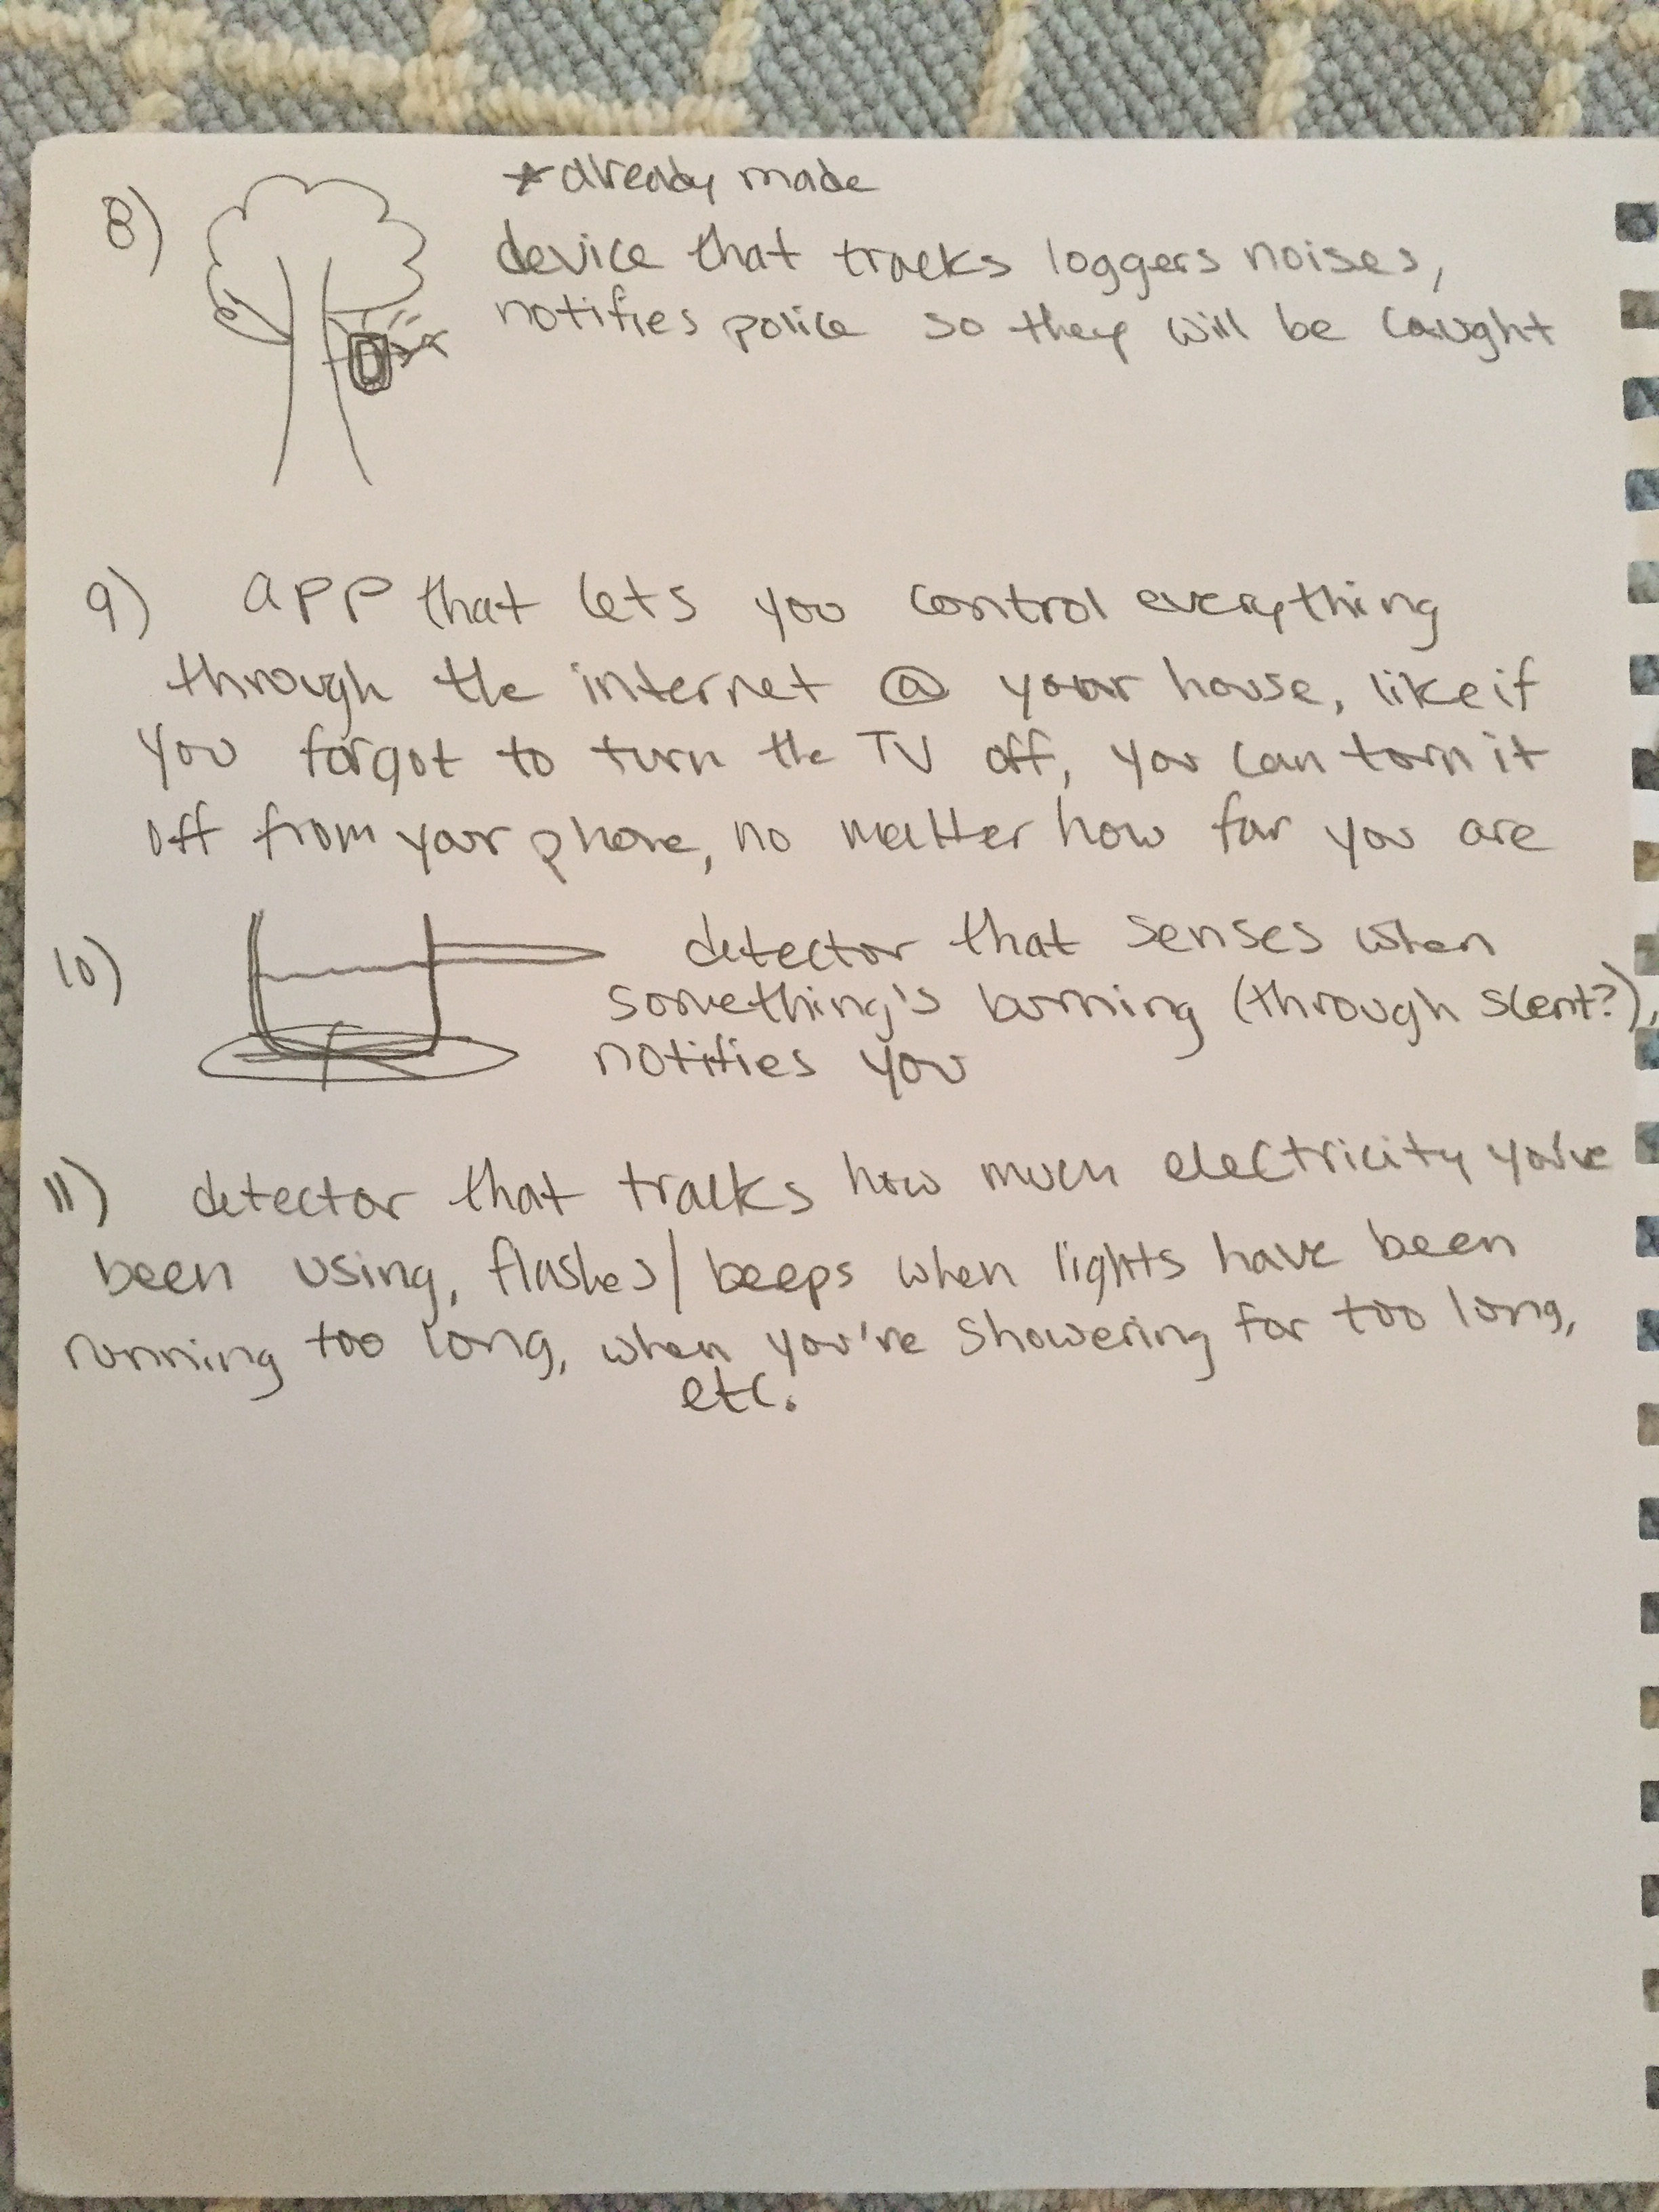 8) *already made
device that tracks loggers noises,
notifies police so they will be caught
9) app that lets you control everything
through the internet @ your house, like if
you forgot to turn the TV off, you can turn it
off from your phone, no matter how far you are
10) detector that senses when
something's burning (through scent?),
notifies you
11) detector that tracks how much electricity you've
been using, flashes/beeps when lights have been
running too long, when you're showering for too long,
etc.